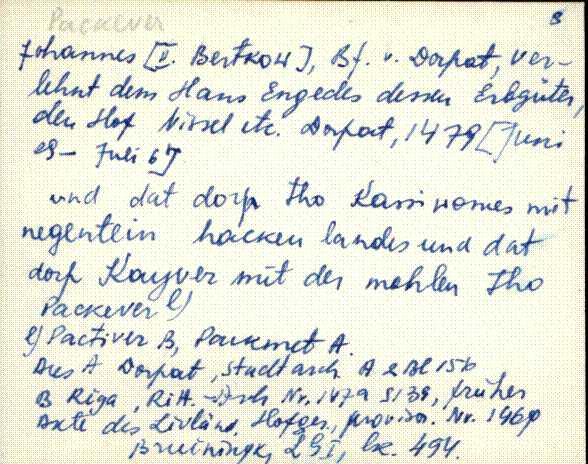 Packever
8
Johannes [II. Bertkow], Bf. v. Dorpat, ver-
lehnt dem Hans Engedes dessen Erbgüter,
den Hof Nissel etc. Dorpat, 1479 [Juni
29 – Juli 6]
und dat dorp tho Kassinomes mit
negentein hacken landes und dat
dorp Kayver mit der mohlen tho
Packever l)
l) Pactiver B, Paukmet A.
Aus A Dorpat, Stadtarch. A 2 Bl 156
B Riga, Ritt.-Arch. Nr. 147a S 139, früher
Akte des Livländ. Hofger., provisor. Nr. 146
Bruiningk, LG I, Nr. 494.